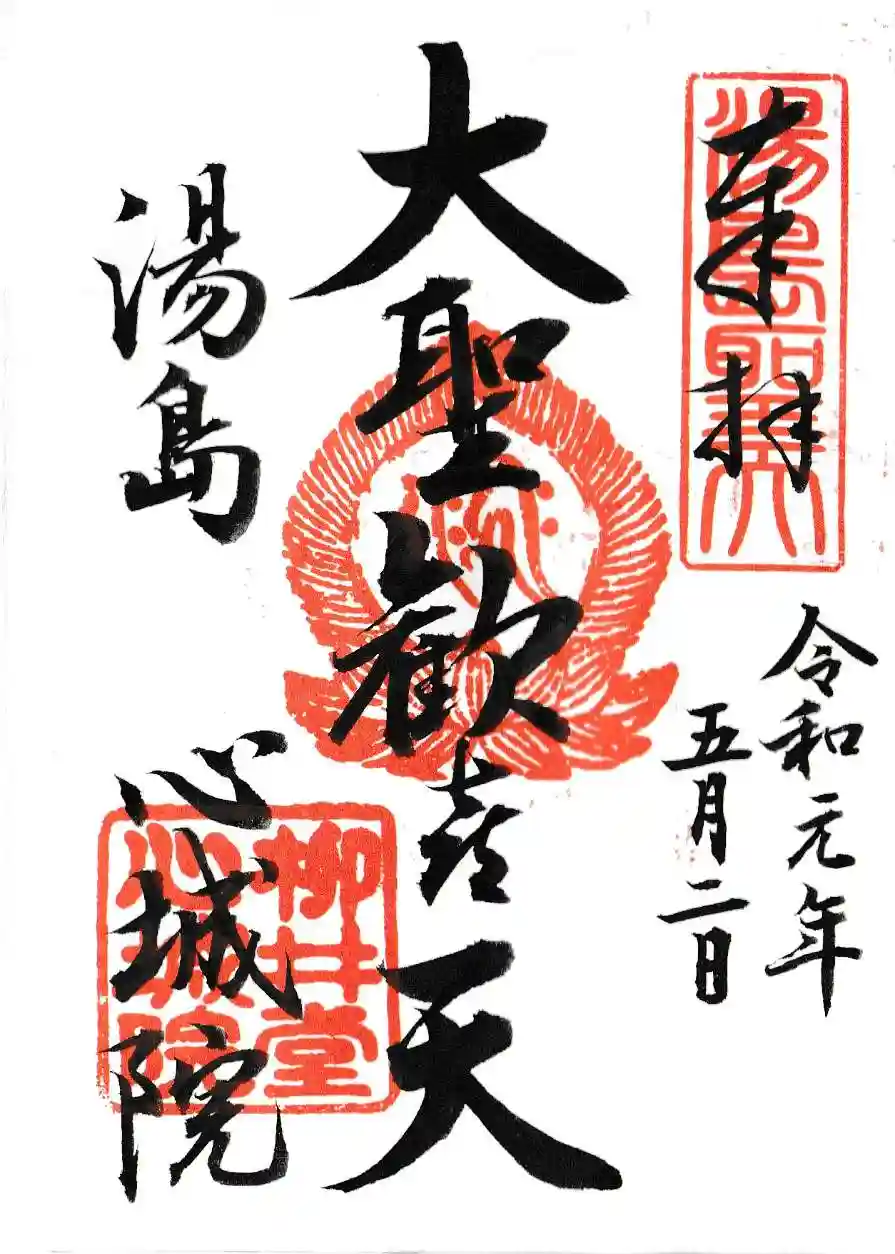 奉拝
湯島聖天
令和元年
五月二日
大聖歓喜天
湯島
心城院
柳井堂
心城院